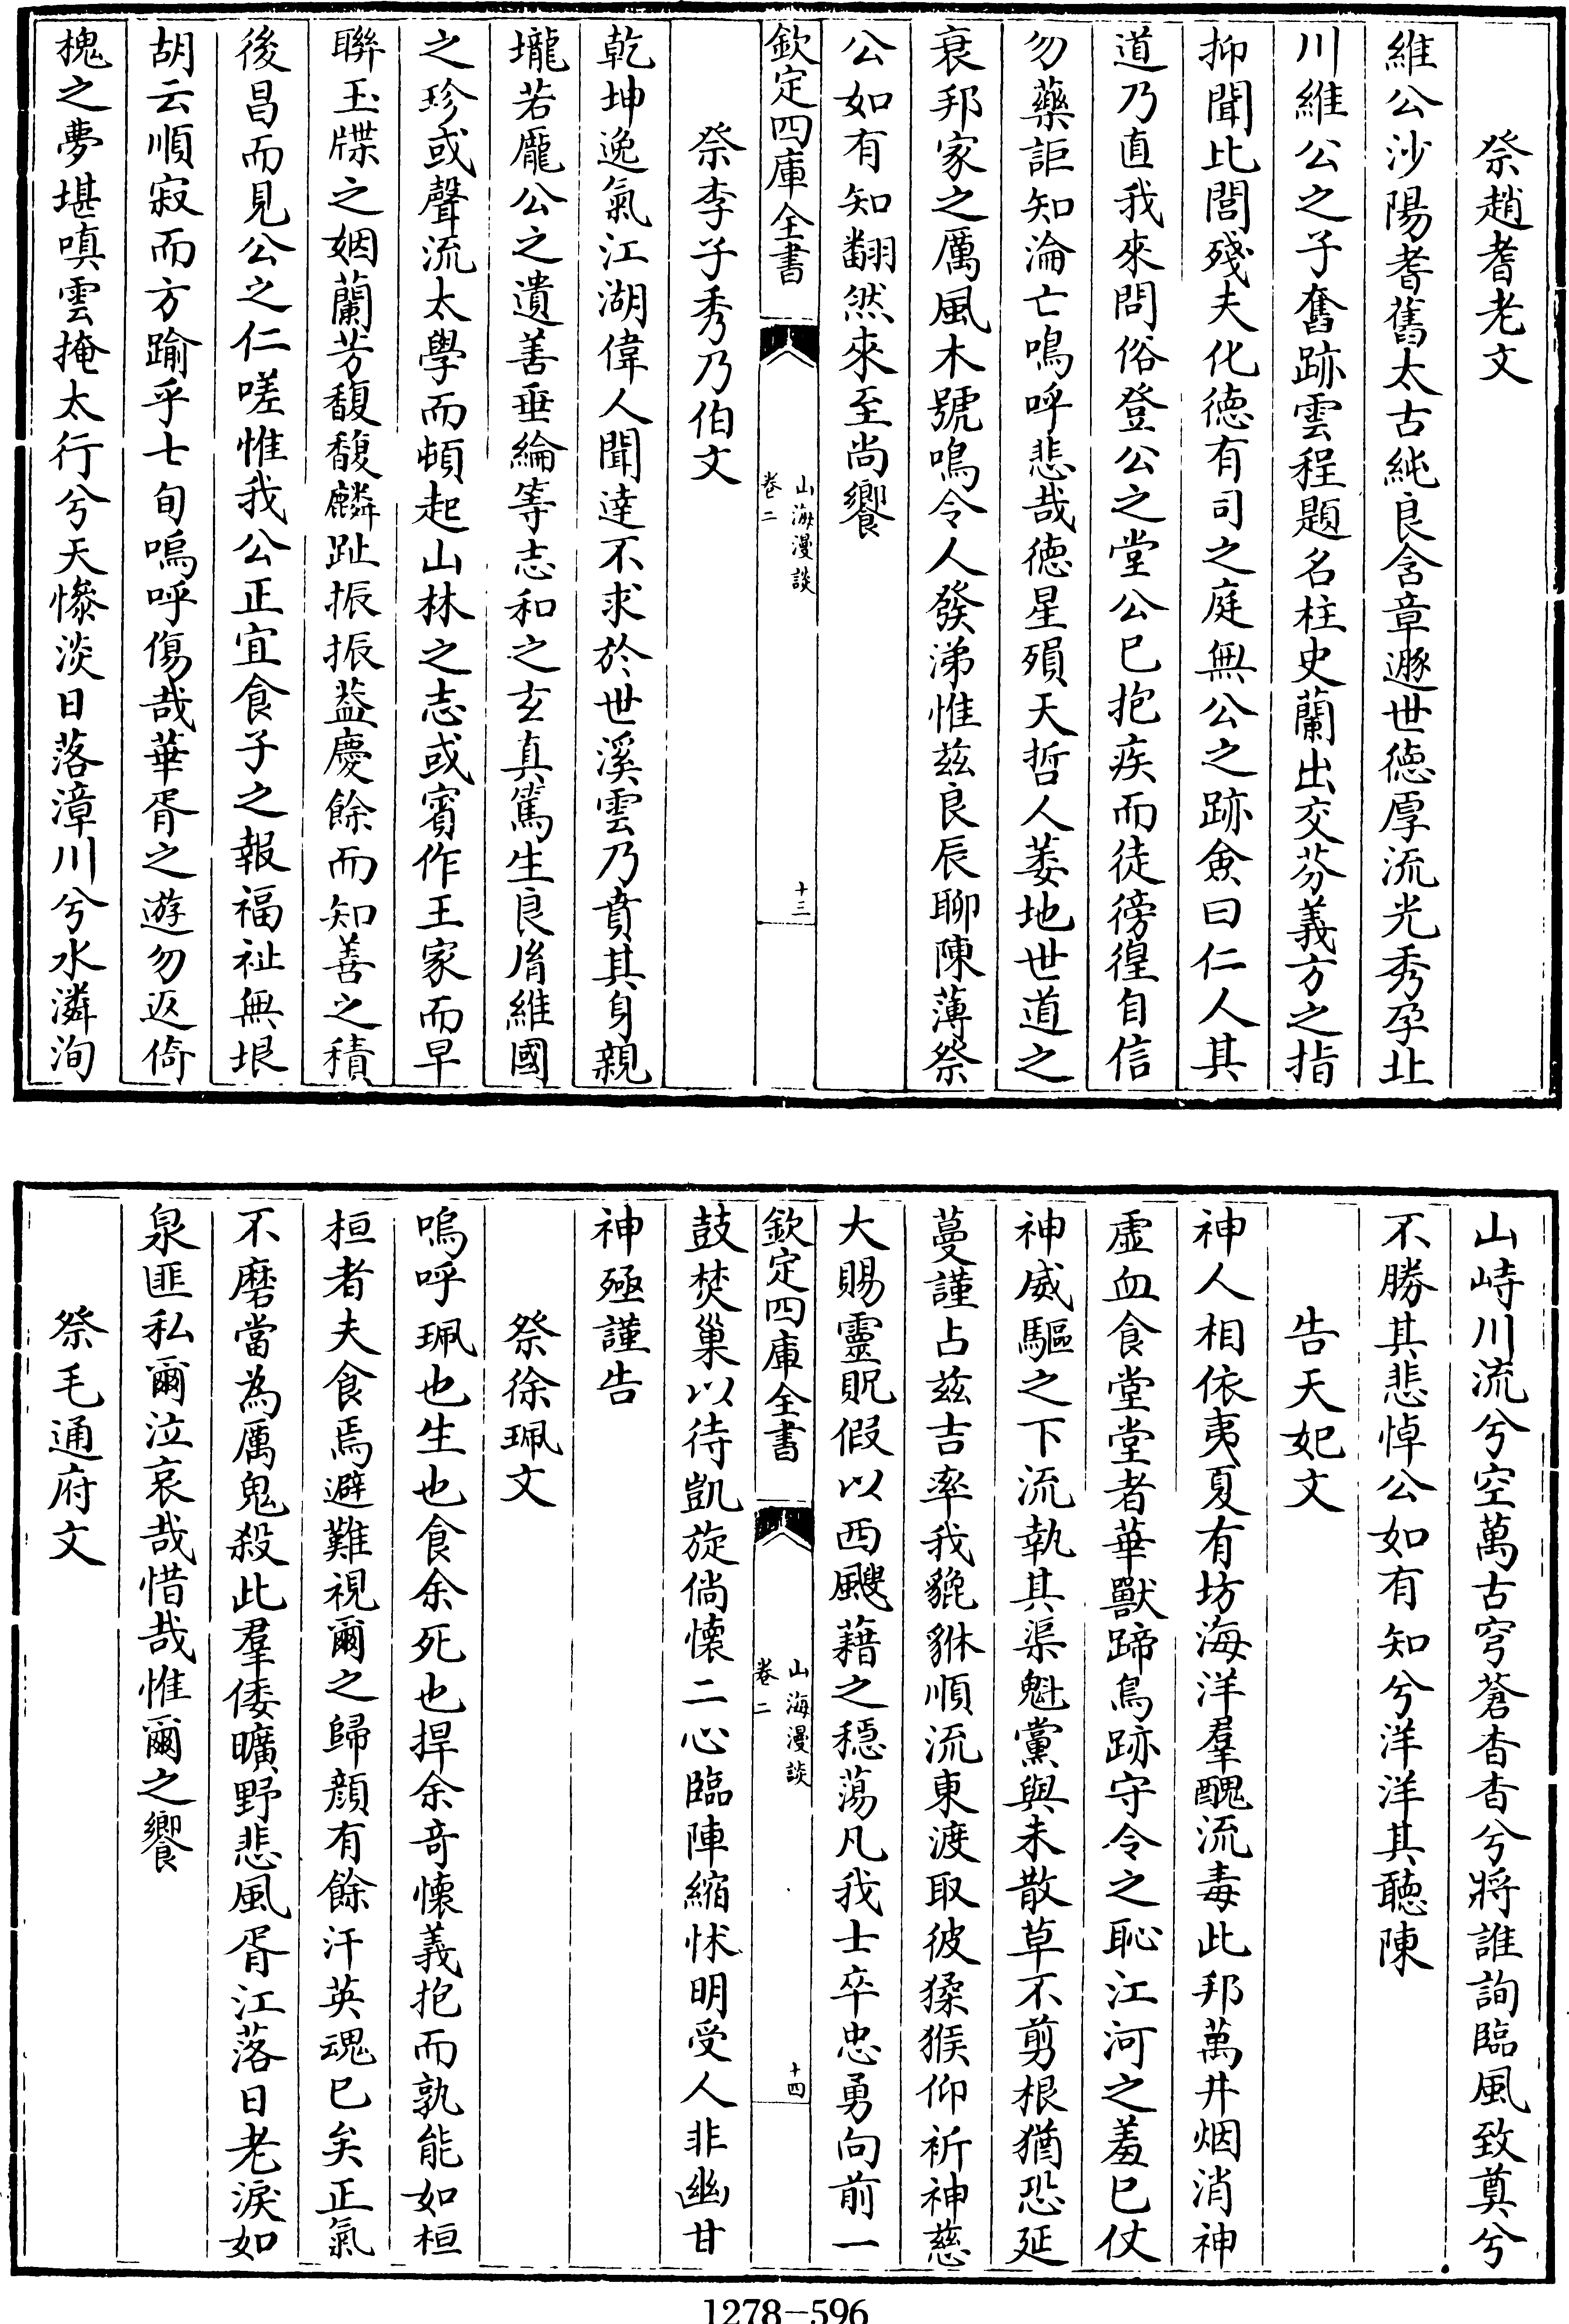 祭趙耆老文
維公沙陽耆舊太古純良含章遯世徳厚流光秀孕北
川維公之子奮跡雲程題名柱史蘭出交芬義方之指
抑聞比閭殘夫化徳有司之庭無公之跡僉曰仁人其
道乃直我來問俗登公之堂公已抱疾而徒徬徨自信
勿藥詎知淪亡鳴呼悲哉徳星殞天哲人萎地世道之
衰邦家之厲風木號鳴令人發涕惟兹良辰聊陳薄祭
公如有知翻然來至尚饗
欽定四庫全書
山海漫談
卷二
十三
祭李子秀乃伯文
乾坤逸氣江湖偉人聞達不求於世溪雲乃賁其身親
壠若龐公之遺善垂綸等志和之玄真篤生良胤維國
之珍或聲流太學而頓起山林之志或賓作王家而早
聯玉牒之姻蘭芳馥馥麟趾振振益慶餘而知善之積
後昌而見公之仁嗟惟我公正宜食子之報福祉無垠
胡云順寂而方踰乎七旬嗚呼傷哉華胥之遊勿返倚
槐之夢堪嗔雲掩太行兮天慘淡日落漳川兮水潾洵
山峙川流兮空萬古穹蒼杳杳兮將誰詢臨風致奠兮
不勝其悲悼公如有知兮洋洋其聽陳
告天妃文
神人相依夷夏有坊海洋羣醜流毒此邦萬井烟消神
虛血食堂堂者華獸蹄鳥跡守令之恥江河之羞已仗
神威驅之下流執其渠魁黨與未散草不剪根猶恐延
蔓謹占兹吉率我貔貅順流東渡取彼猱猴仰祈神慈
大賜靈貺假以西颸藉之穩蕩凡我士卒忠勇向前一
欽定四庫全書
山海漫談
卷二
十四
鼓焚巢以待凱旋倘懐二心臨陣縮怵明受人非幽甘
神殛謹告
祭徐珮文
嗚呼珮也生也食余死也捍余竒懐義抱而孰能如桓
桓者夫食焉避難視爾之歸顔有餘汗英魂已矣正氣
不磨當為厲鬼殺此羣倭曠野悲風胥江落日老淚如
泉匪私爾泣哀哉惜哉惟爾之饗
祭毛通府文
1278-596